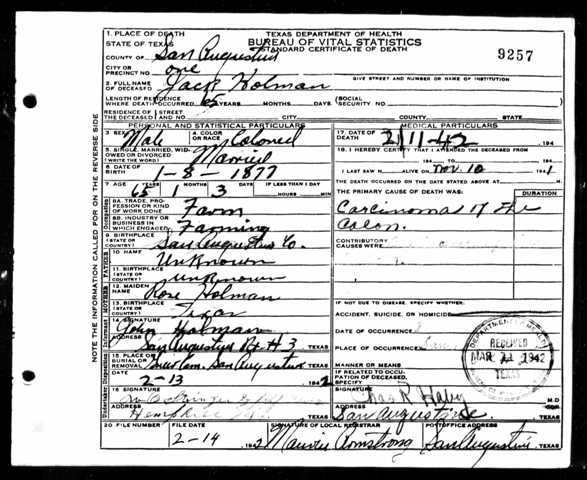 TEXAS DEPARTMENT OF HEALTH
BUREAU OF VITAL STATISTICS
STANDARD CERTIFICATE OF DEATH
9257
NOTE THE INFORMATION CALLED FOR ON THE REVERSE SIDE
1. PLACE OF DEATH
STATE OF TEXAS
COUNTY OF San Augustine
CITY OR PRECINCT NO. one
GIVE STREET AND NUMBER OR NAME OF INSTITUTION
2. FULL NAME OF DECEASED Jack Holman
LENGTH OF RESIDENCE WHERE DEATH OCCURRED 65 YEARS MONTHS DAYS
SOCIAL SECURITY NO.
RESIDENCE OF THE DECEASED STREET AND NO. CITY COUNTY STATE
PERSONAL AND STATISTICAL PARTICULARS
3. SEX Male
4. COLOR OR RACE Colored
5. SINGLE, MARRIED, WIDOWED OR DIVORCED (WRITE) Married
6. DATE OF BIRTH 1-8-1877
7. AGE 65 YEARS 1 MONTHS 3 DAYS IF LESS THAN 1 DAY HOURS MIN
Occupation
8A. TRADE, PROFESSION OR KIND OF WORK DONE Farm
8B. INDUSTRY OR BUSINESS IN WHICH ENGAGED Farming
9. BIRTHPLACE (STATE OR COUNTRY) San Augustine Co.
FATHER
10. NAME Unknown
11. BIRTHPLACE (STATE OR COUNTRY) unknown
MOTHER
12. MAIDEN NAME Rose Holman
13. BIRTHPLACE (STATE OR COUNTRY) Texas
Informant
14. SIGNATURE John Holman
ADDRESS San Augustine Rt # 3 TEXAS
Undertaker Disposition
15. PLACE OF BURIAL OR REMOVAL Cem. San Augustine TEXAS
DATE 2-13 1942
16. SIGNATURE
ADDRESS Hemphill TEXAS
MEDICAL PARTICULARS
17. DATE OF DEATH 2 11 42 194
18. I HEREBY CERTIFY THAT I ATTENDED THE DECEASED FROM
194 TO 194
I LAST SAW H ALIVE ON Nov. 10 1941
THE DEATH OCCURRED ON THE DATE STATED ABOVE AT M.
THE PRIMARY CAUSE OF DEATH WAS: DURATION
Carcinoma of the
Colon.
CONTRIBUTORY CAUSES WERE
IF NOT DUE TO DISEASE, SPECIFY WHETHER:
ACCIDENT, SUICIDE, OR HOMICIDE
DATE OF OCCURRENCE
PLACE OF OCCURRENCE
MANNER OR MEANS
IF RELATED TO OCCUPATION OF DECEASED, SPECIFY
SIGNATURE Chas R Haley M D
ADDRESS San Augustine TEXAS
RECEIVED
MAR 11 1942
TEXAS
20. FILE NUMBER FILE DATE SIGNATURE OF LOCAL REGISTRAR POSTOFFICE ADDRESS
2-14 1942 Armstrong San Augustine TEXAS